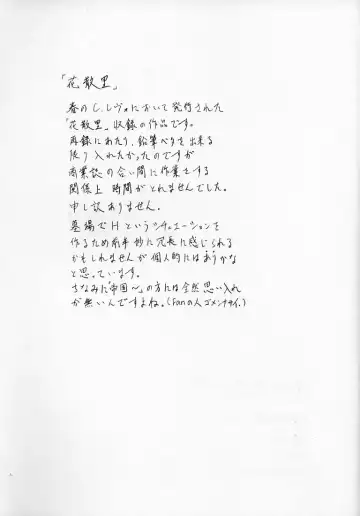 「花散里」
春のC.レヴォにおいて発行された
「花散里」収録の作品です。
再録にあたり、鉛筆ベタを出来る
限り入れたかったのですが
商業誌の合い間に作業をする
関係上 時間がとれませんでした。
申し訳ありません。
墓場でHというシチュエーションを
作るため前半 妙に冗長に感じられる
かもしれませんが個人的にはありかな
と思っています。
ちなみに「帝国〜」の方には全然思い入れ
が無いんですよね。(Fanの人ゴメンナサイ.)